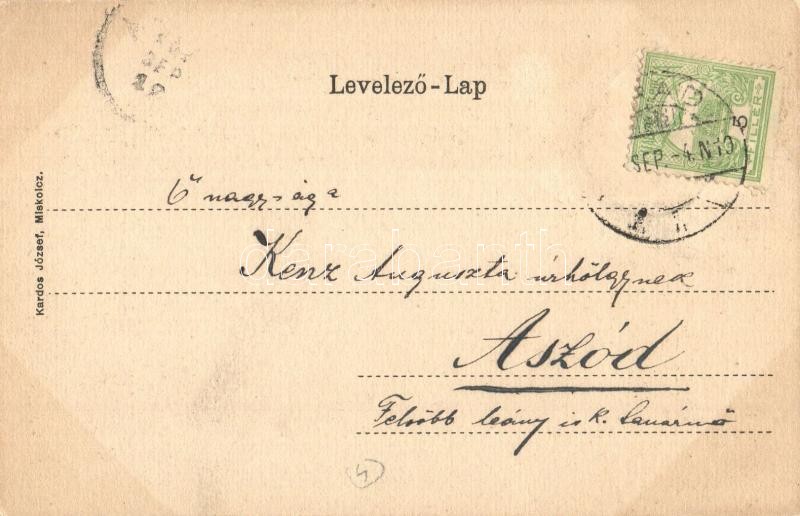 SEP
Levelező-Lap
5
SEP. -4. N. 10
Ő nagysága
Kenz Auguszta úrhölgynek
Aszód
Felsőbb leány isk. tanárnő
Kardos József, Miskolcz.
darabanth
4